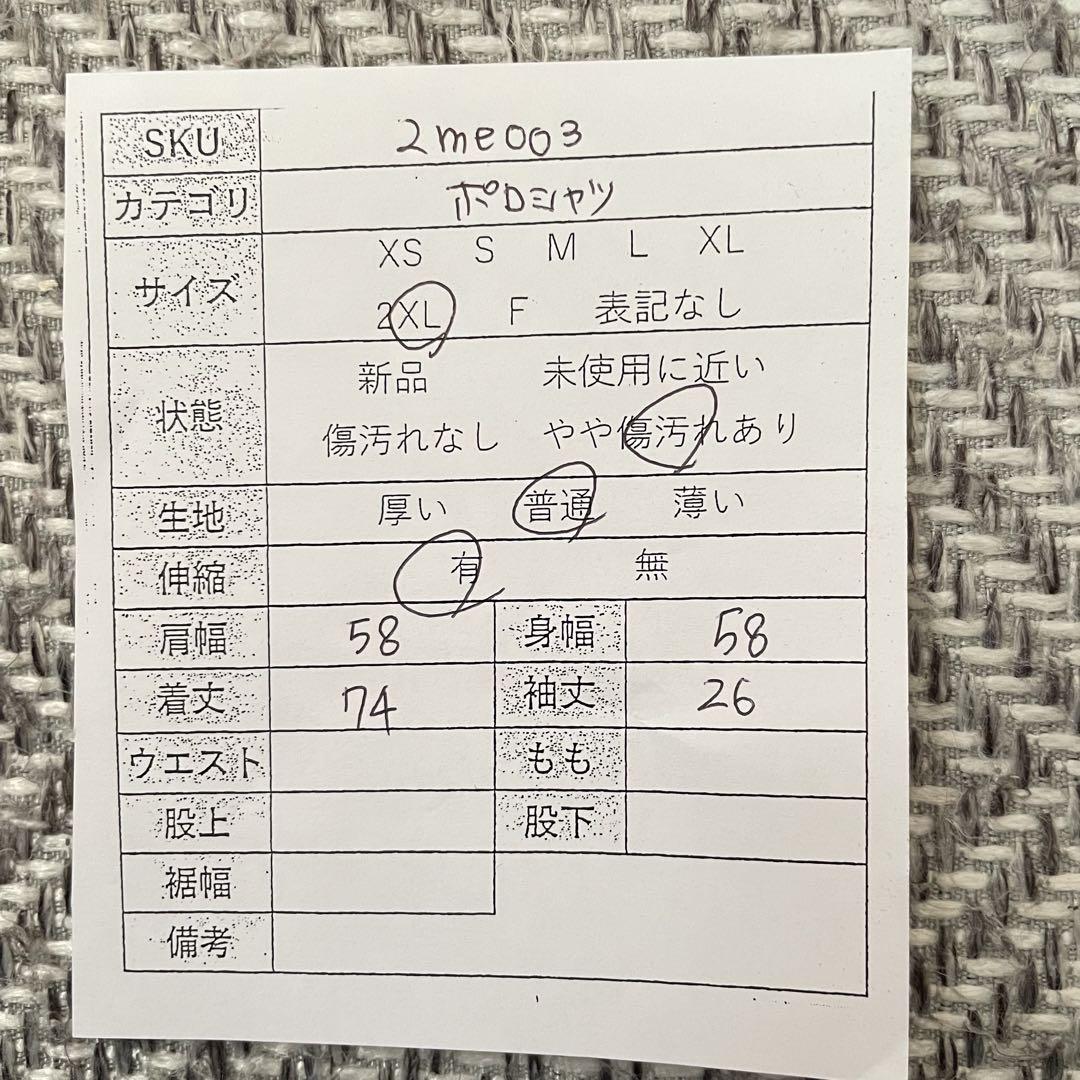 SKU 2me003
カテゴリ ポロシャツ
サイズ XS S M L XL
2XL F 表記なし
状態 新品 未使用に近い
傷汚れなし やや傷汚れあり
生地 厚い 普通 薄い
伸縮 有 無
肩幅 58 身幅 58
着丈 74 袖丈 26
ウエスト もも
股上 股下
裾幅
備考